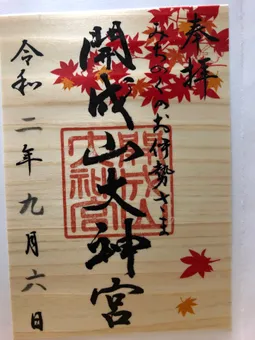 奉拝
みちのくのお伊勢さま
開成山大神宮
開成山
大神宮
令和二年九月六日